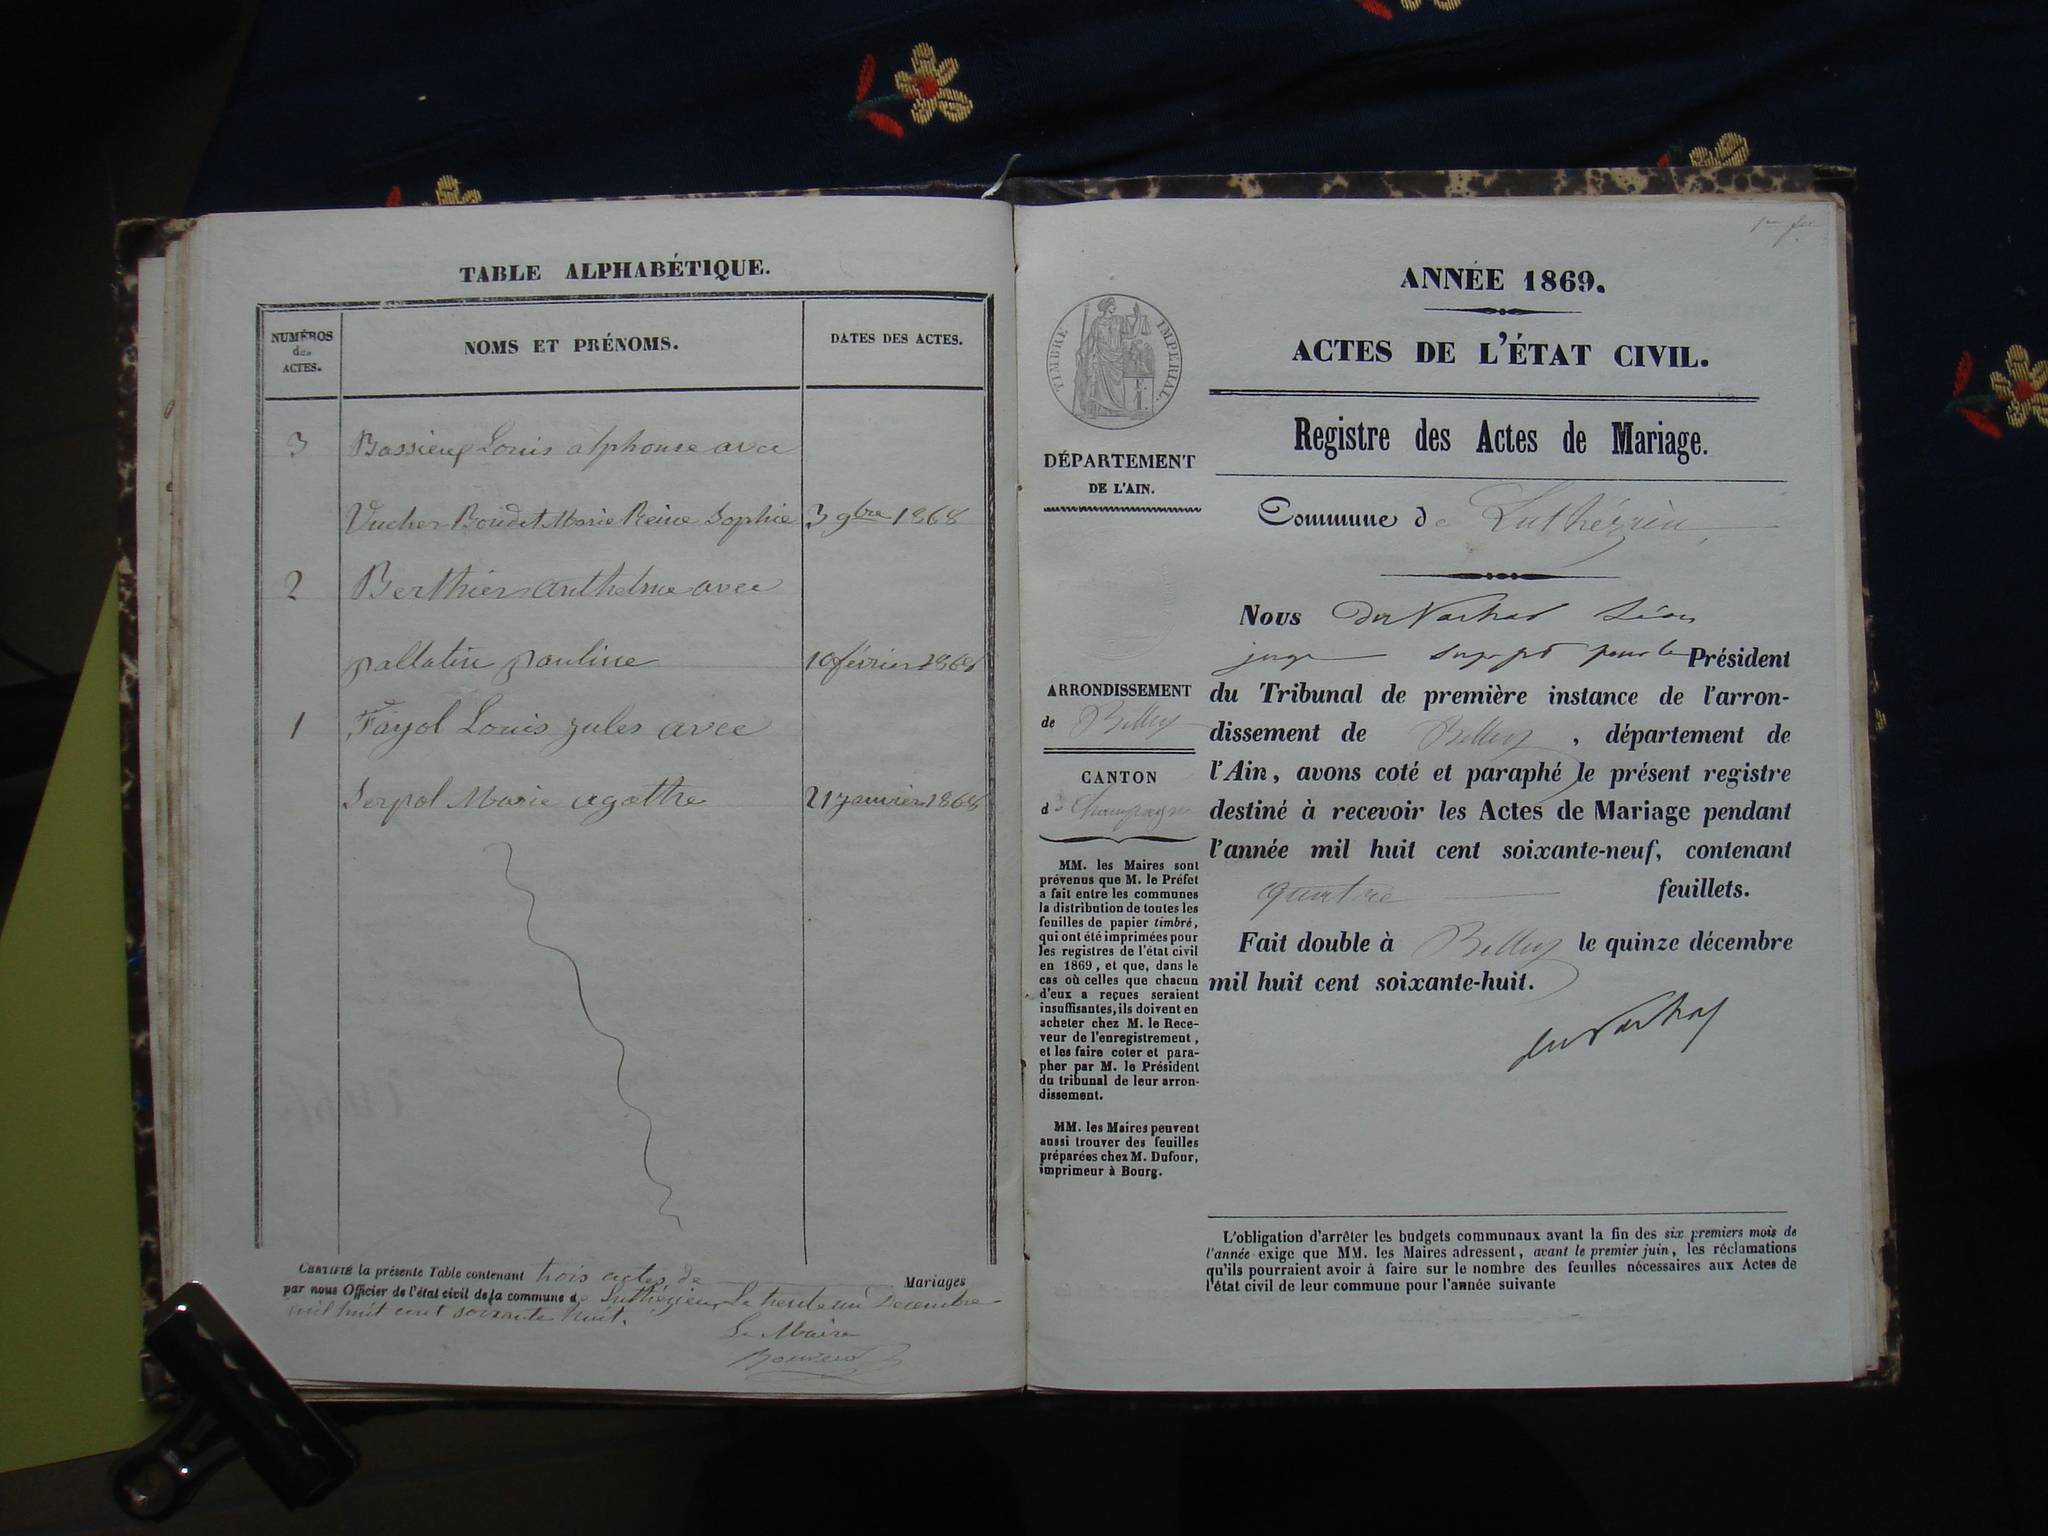 TABLE ALPHABÉTIQUE.
NUMÉROS
des
ACTES.
NOMS ET PRÉNOMS.
DATES DES ACTES.
3 Bassieux Louis alphonse avec
Vucher-Bondet Marie Reine Sophie 3 9bre 1868
2 Berthier anthelme avec
pallatin pauline 10 février 1868
1 Fayol Louis jules avec
Serpol Marie agathe 21 janvier 1868
CERTIFIÉ la présente Table contenant trois actes de Mariages
par nous Officier de l'état civil de la commune de Luthézieu Le trente un Décembre
mil huit cent soixante huit.
Le Maire
TIMBRE IMPERIAL.
DÉPARTEMENT
DE L'AIN.
ARRONDISSEMENT
de Belley
CANTON
de Champagne
MM. les Maires sont
prévenus que M. le Préfet
a fait entre les communes
la distribution de toutes les
feuilles de papier timbré,
qui ont été imprimées pour
les registres de l'état civil
en 1869, et que, dans le
cas où celles que chacun
d'eux a reçues seraient
insuffisantes, ils doivent en
acheter chez M. le Rece-
veur de l'enregistrement,
et les faire coter et para-
pher par M. le Président
du tribunal de leur arron-
dissement.
MM. les Maires peuvent
aussi trouver des feuilles
préparées chez M. Dufour,
imprimeur à Bourg.
ANNÉE 1869.
ACTES DE L'ÉTAT CIVIL.
Registre des Actes de Mariage.
Commune de Luthézieu
Nous Léon
juge pour le Président
du Tribunal de première instance de l'arron-
dissement de Belley, département de
l'Ain, avons coté et paraphé le présent registre
destiné à recevoir les Actes de Mariage pendant
l'année mil huit cent soixante-neuf, contenant
quatre feuillets.
Fait double à Belley le quinze décembre
mil huit cent soixante-huit.
L'obligation d'arrêter les budgets communaux avant la fin des six premiers mois de
l'année exige que MM. les Maires adressent, avant le premier juin, les réclamations
qu'ils pourraient avoir à faire sur le nombre des feuilles nécessaires aux Actes de
l'état civil de leur commune pour l'année suivante